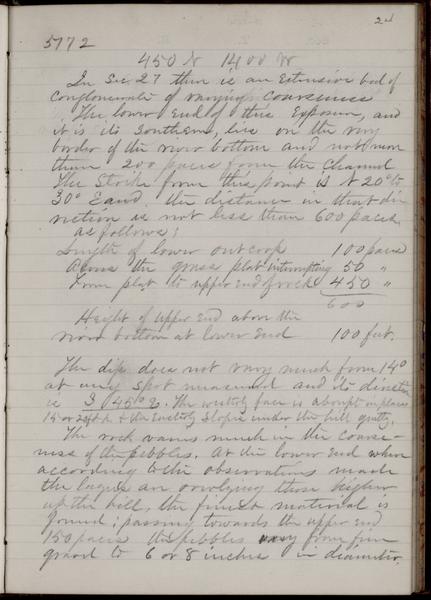 2d
5772
450 N 1400 W
In Sec. 27 there is an extensive bed of
conglomerate of varying coarseness
The lower end of this exposure, and
it is its Southern, lies on the very
border of the river bottom and not more
than 200 paces from the channel
The Strike from this point is N 20° to
30° E and the distance in that di-
rection is not less than 600 paces
as follows;
Length of lower outcrop 100 paces
Across the grass plat interrupting 50 "
From plat to upper end of rock 450 "
600
Height of upper end above the
river bottom at lower end 100 feet.
The dip does not vary much from 14°
at any spot measured and its direction
is S 45° E. The westerly face is abrupt in places
15 or 25 ft & the Easterly Slopes under the hill gently.
The rock varies much in the coarse-
ness of the pebbles. At the lower end where
according to the observations made
the layers are overlying those higher
up the hill, the finest material is
found; passing towards the upper end
150 paces the pebbles vary from fine
gravel to 6 or 8 inches in diameter.